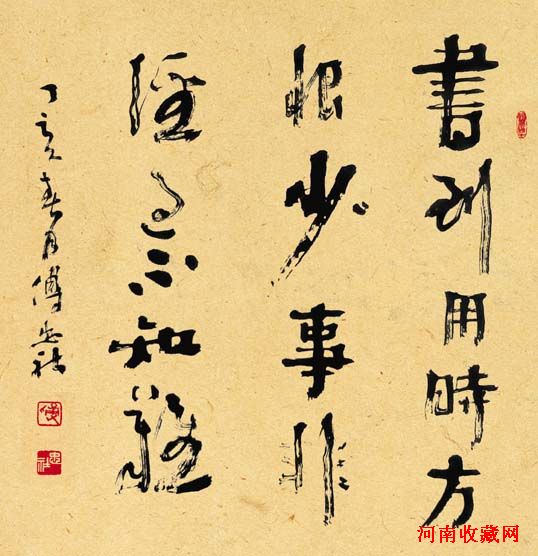 書到用時方
恨少事非
經過不知難
丁亥春月傅
河南收藏网